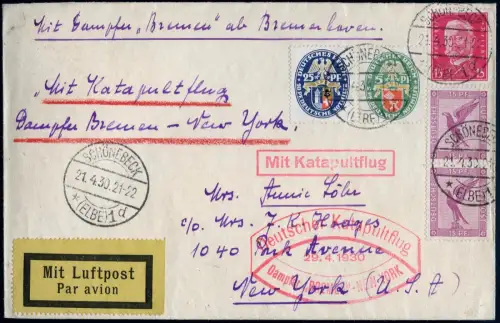 Mit Dampfer „Bremen" ab Bremerhaven.
SCHÖNEBECK
21.4.30
„Mit Katapultflug
Dampfer Bremen – New York."
DEUTSCHES REICH
25 PF
(ELBE)
Mit Katapultflug
SCHÖNEBECK
21.4.30.21-22
*(ELBE)1d
Mrs. Annie Löhr
c/o. Mrs. J. K. Hodges
1040 Park Avenue
New York (U.S.A)
Deutscher Katapultflug
29.4.1930
Dampfer BREMEN-NEW-YORK
15 PF
* (ELBE) 1d
Mit Luftpost
Par avion